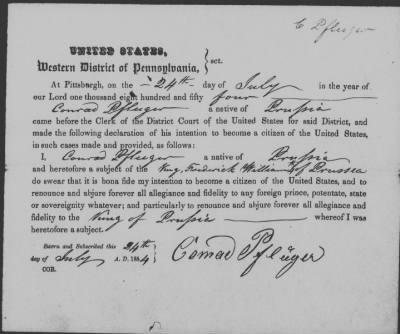 C Pfluger
UNITED STATES,
Western District of Pennsylvania, } sct.
At Pittsburgh, on the 24th day of July in the year of
our Lord one thousand eight hundred and fifty four
Conrad Pflueger a native of Prussia
came before the Clerk of the District Court of the United States for said District, and
made the following declaration of his intention to become a citizen of the United States,
in such cases made and provided, as follows:
I, Conrad Pflueger a native of Prussia
and heretofore a subject of the King, Frederick William of Prussia
do swear that it is bona fide my intention to become a citizen of the United States, and to
renounce and abjure forever all allegiance and fidelity to any foreign prince, potentate, state
or sovereignty whatever; and particularly to renounce and abjure forever all allegiance and
fidelity to the King of Prussia whereof I was
heretofore a subject.
Sworn and Subscribed this 24th
day of July A. D. 1854
COB.
Conrad Pflüger